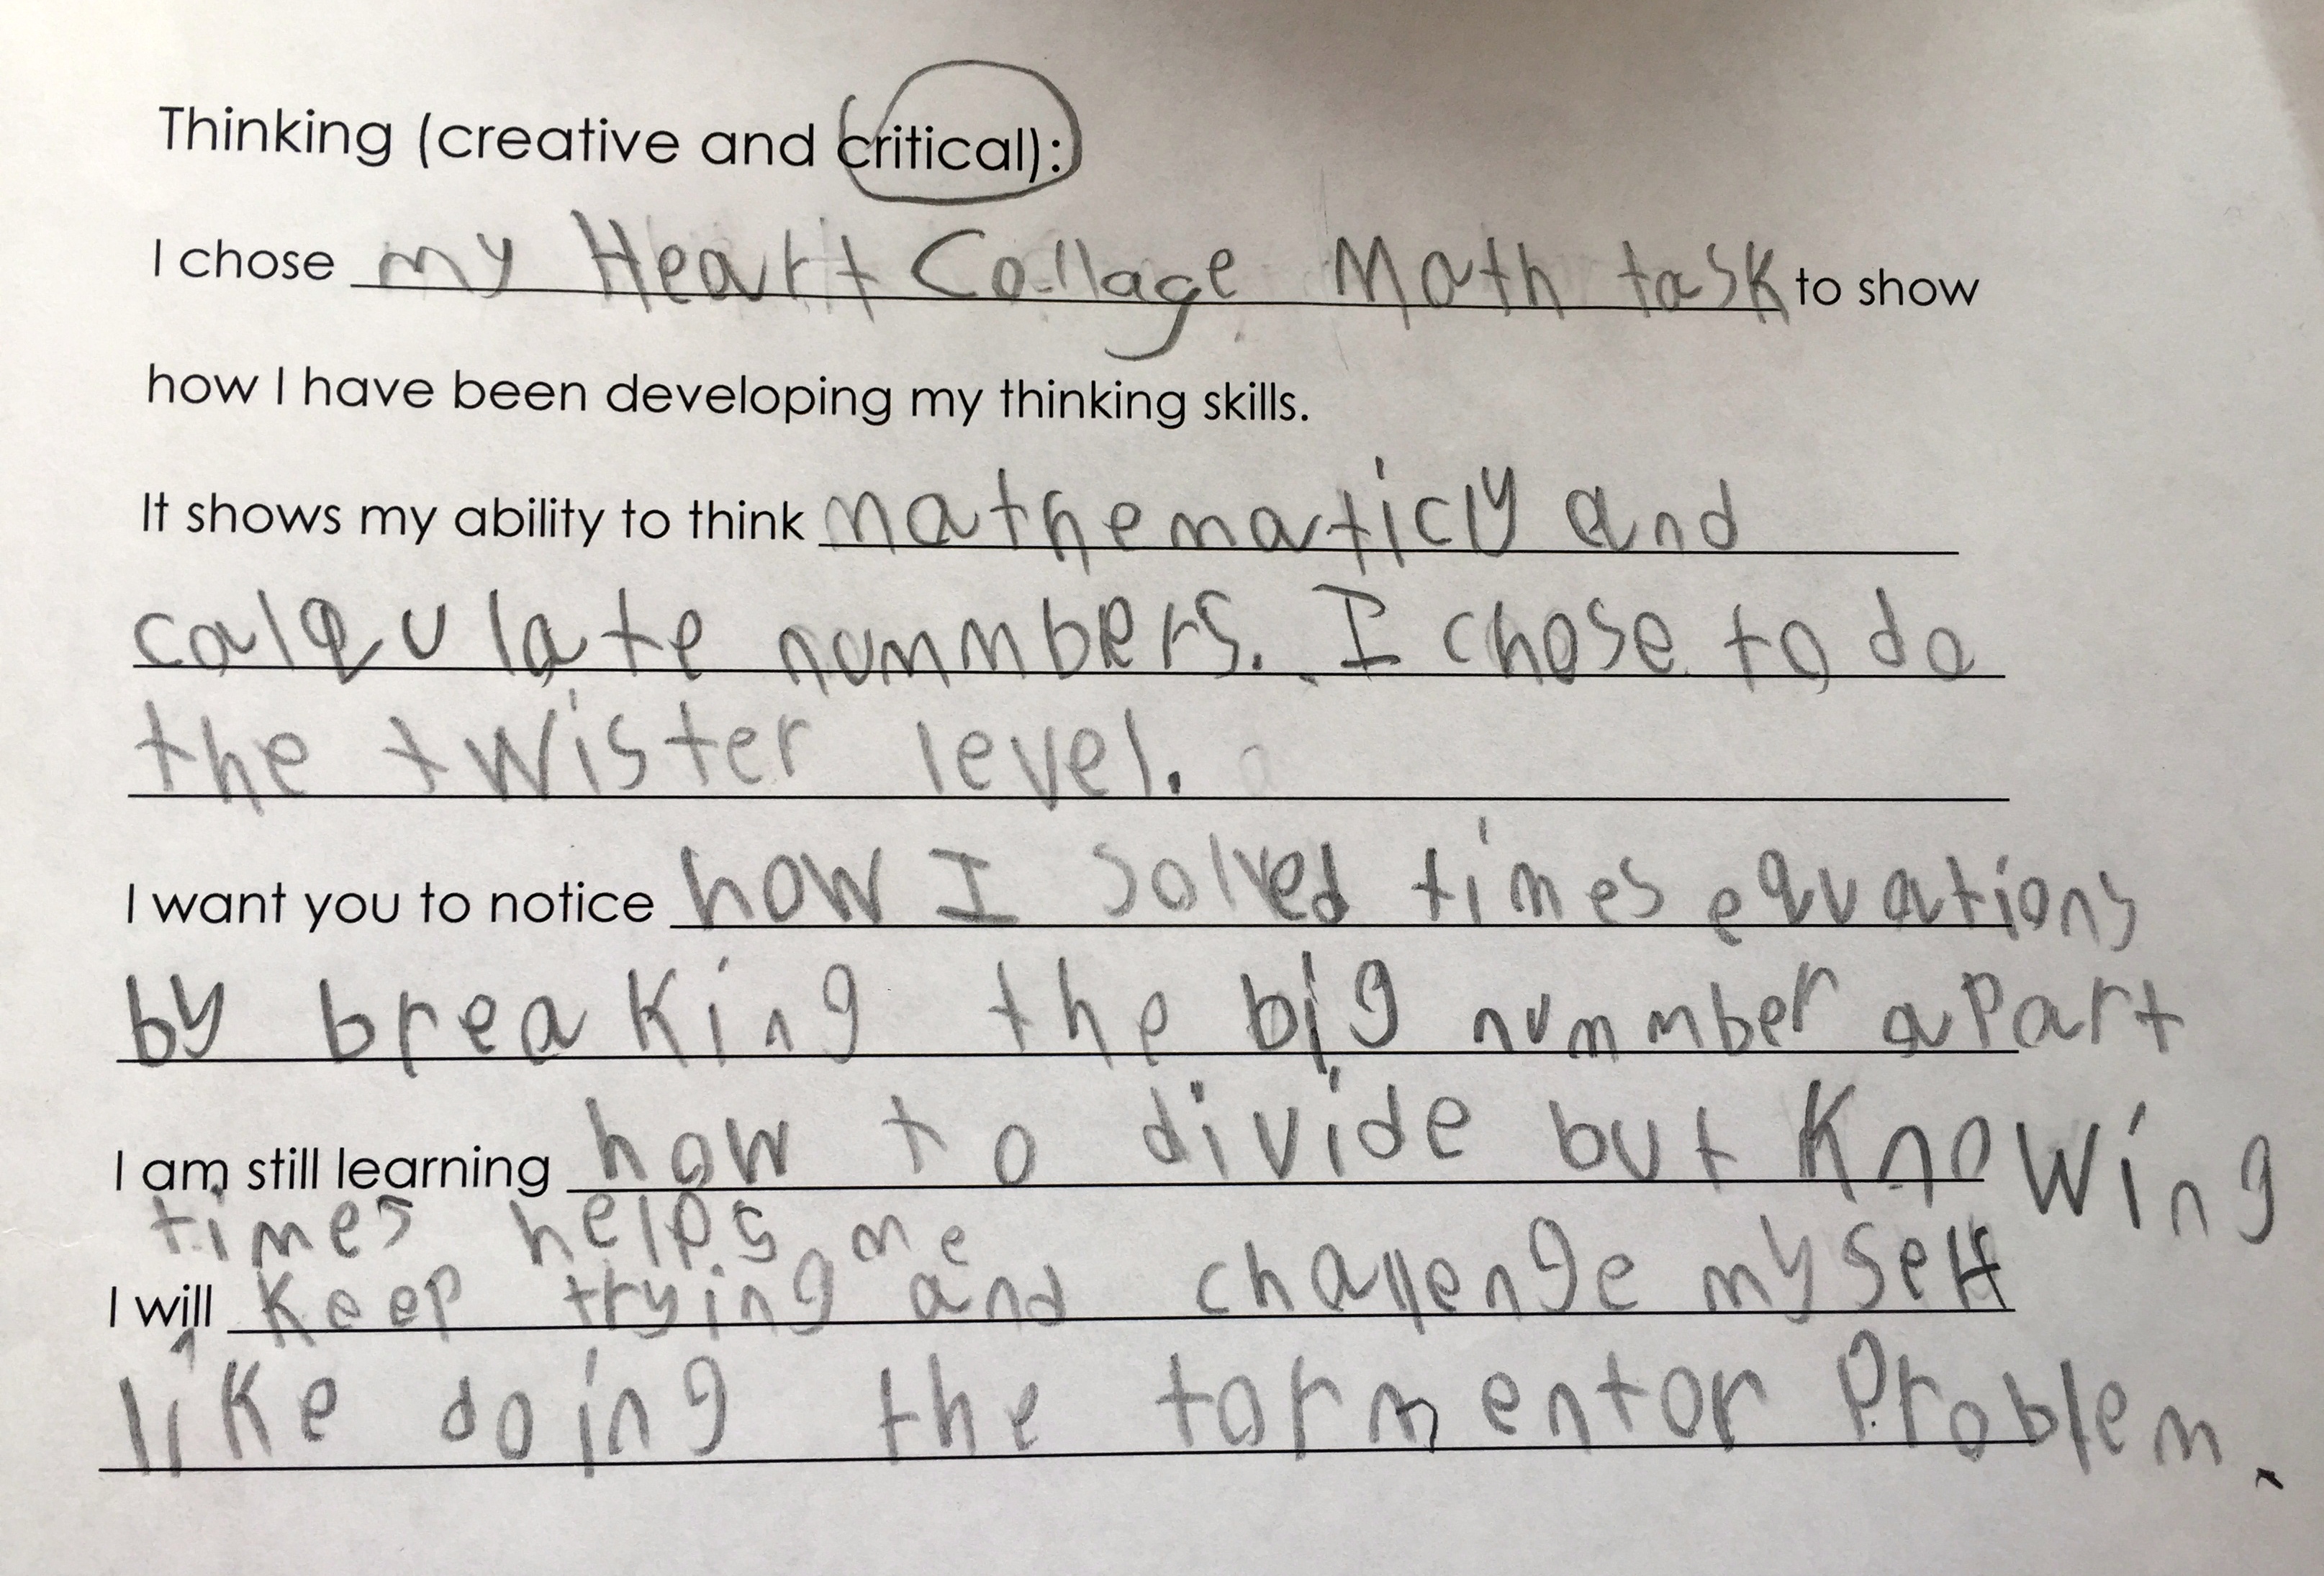 Thinking (creative and critical):
I chose my Heart Collage Math task to show
how I have been developing my thinking skills.
It shows my ability to think mathematicly and
calqulate nummbers. I chose to do
the twister level.
I want you to notice how I solved times equations
by breaking the big nummber apart
I am still learning how to divide but Knowing
times helps me
I will Keep trying and challenge myself
like doing the tormentor Problem.